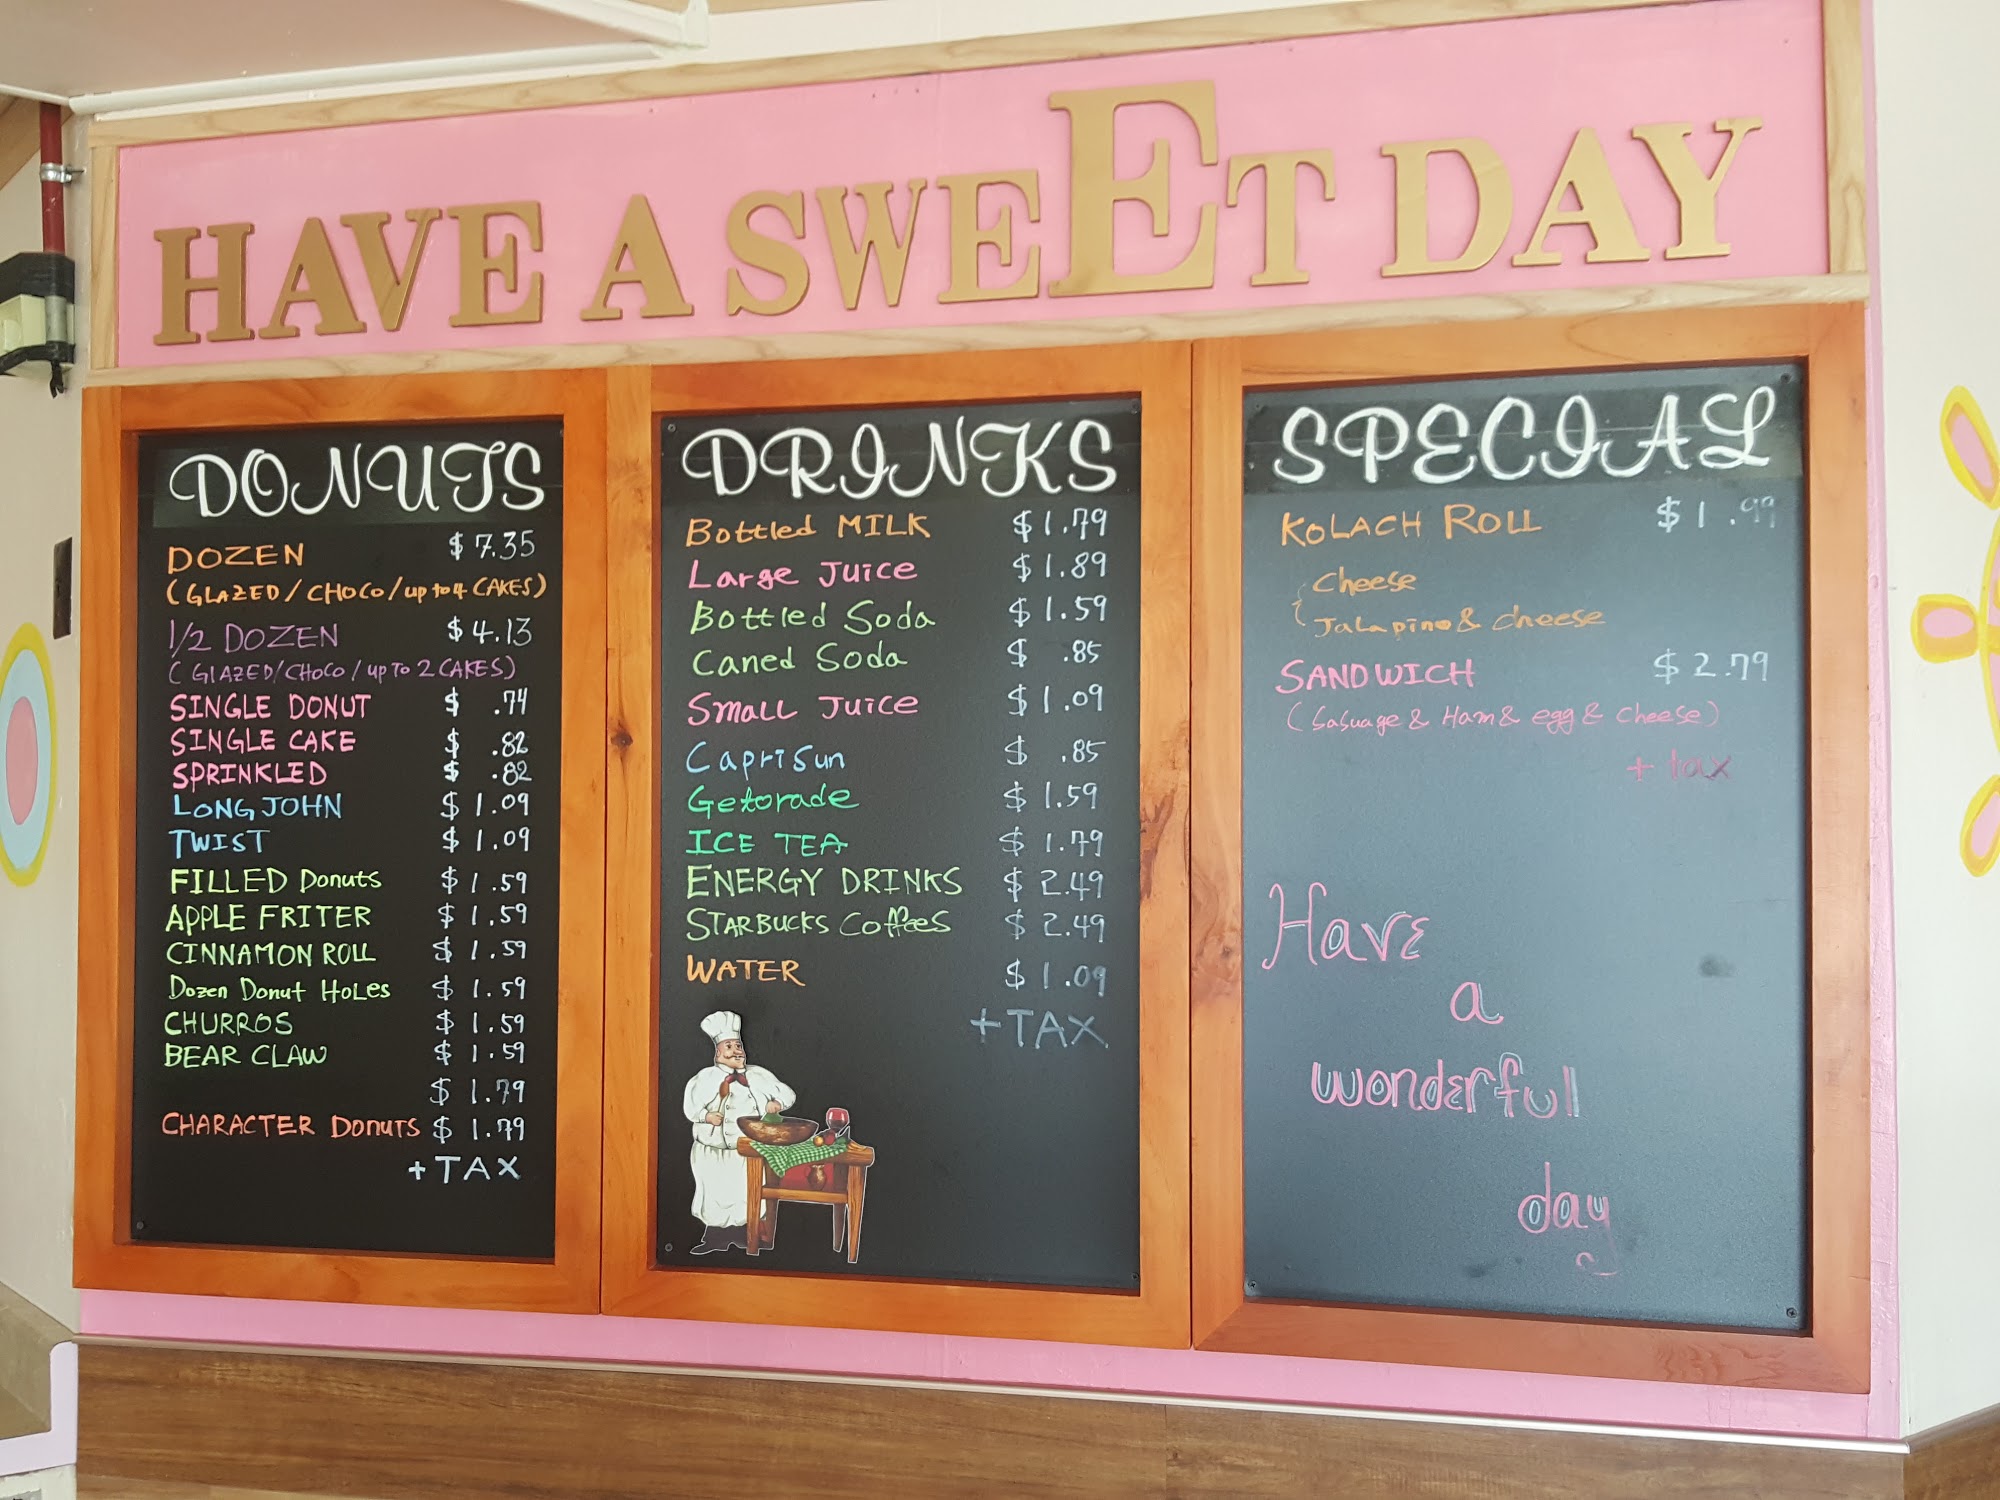 HAVE A SWEET DAY
DONUTS
DOZEN $7.35
(GLAZED/CHOCO/up to 4 CAKES)
1/2 DOZEN $4.13
(GLAZED/CHOCO/up To 2 CAKES)
SINGLE DONUT $ .74
SINGLE CAKE $ .82
SPRINKLED $ .82
LONG JOHN $1.09
TWIST $1.09
FILLED Donuts $1.59
APPLE FRITER $1.59
CINNAMON ROLL $1.59
Dozen Donut HoLes $1.59
CHURROS $1.59
BEAR CLAW $1.59
$1.79
CHARACTER DonuTS $1.79
+TAX
DRINKS
Bottled MILK $1.79
Large Juice $1.89
Bottled Soda $1.59
Caned Soda $ .85
Small Juice $1.09
CapriSun $ .85
Getorade $1.59
ICE TEA $1.79
ENERGY DRINKS $2.49
STARBUCKS Coffees $2.49
WATER $1.09
+TAX
SPECIAL
KOLACH ROLL $1.99
Cheese
Jalapino & cheese
SANDWICH $2.79
(Sasuage & Ham & egg & cheese)
+ tax
Have
a
wonderful
day